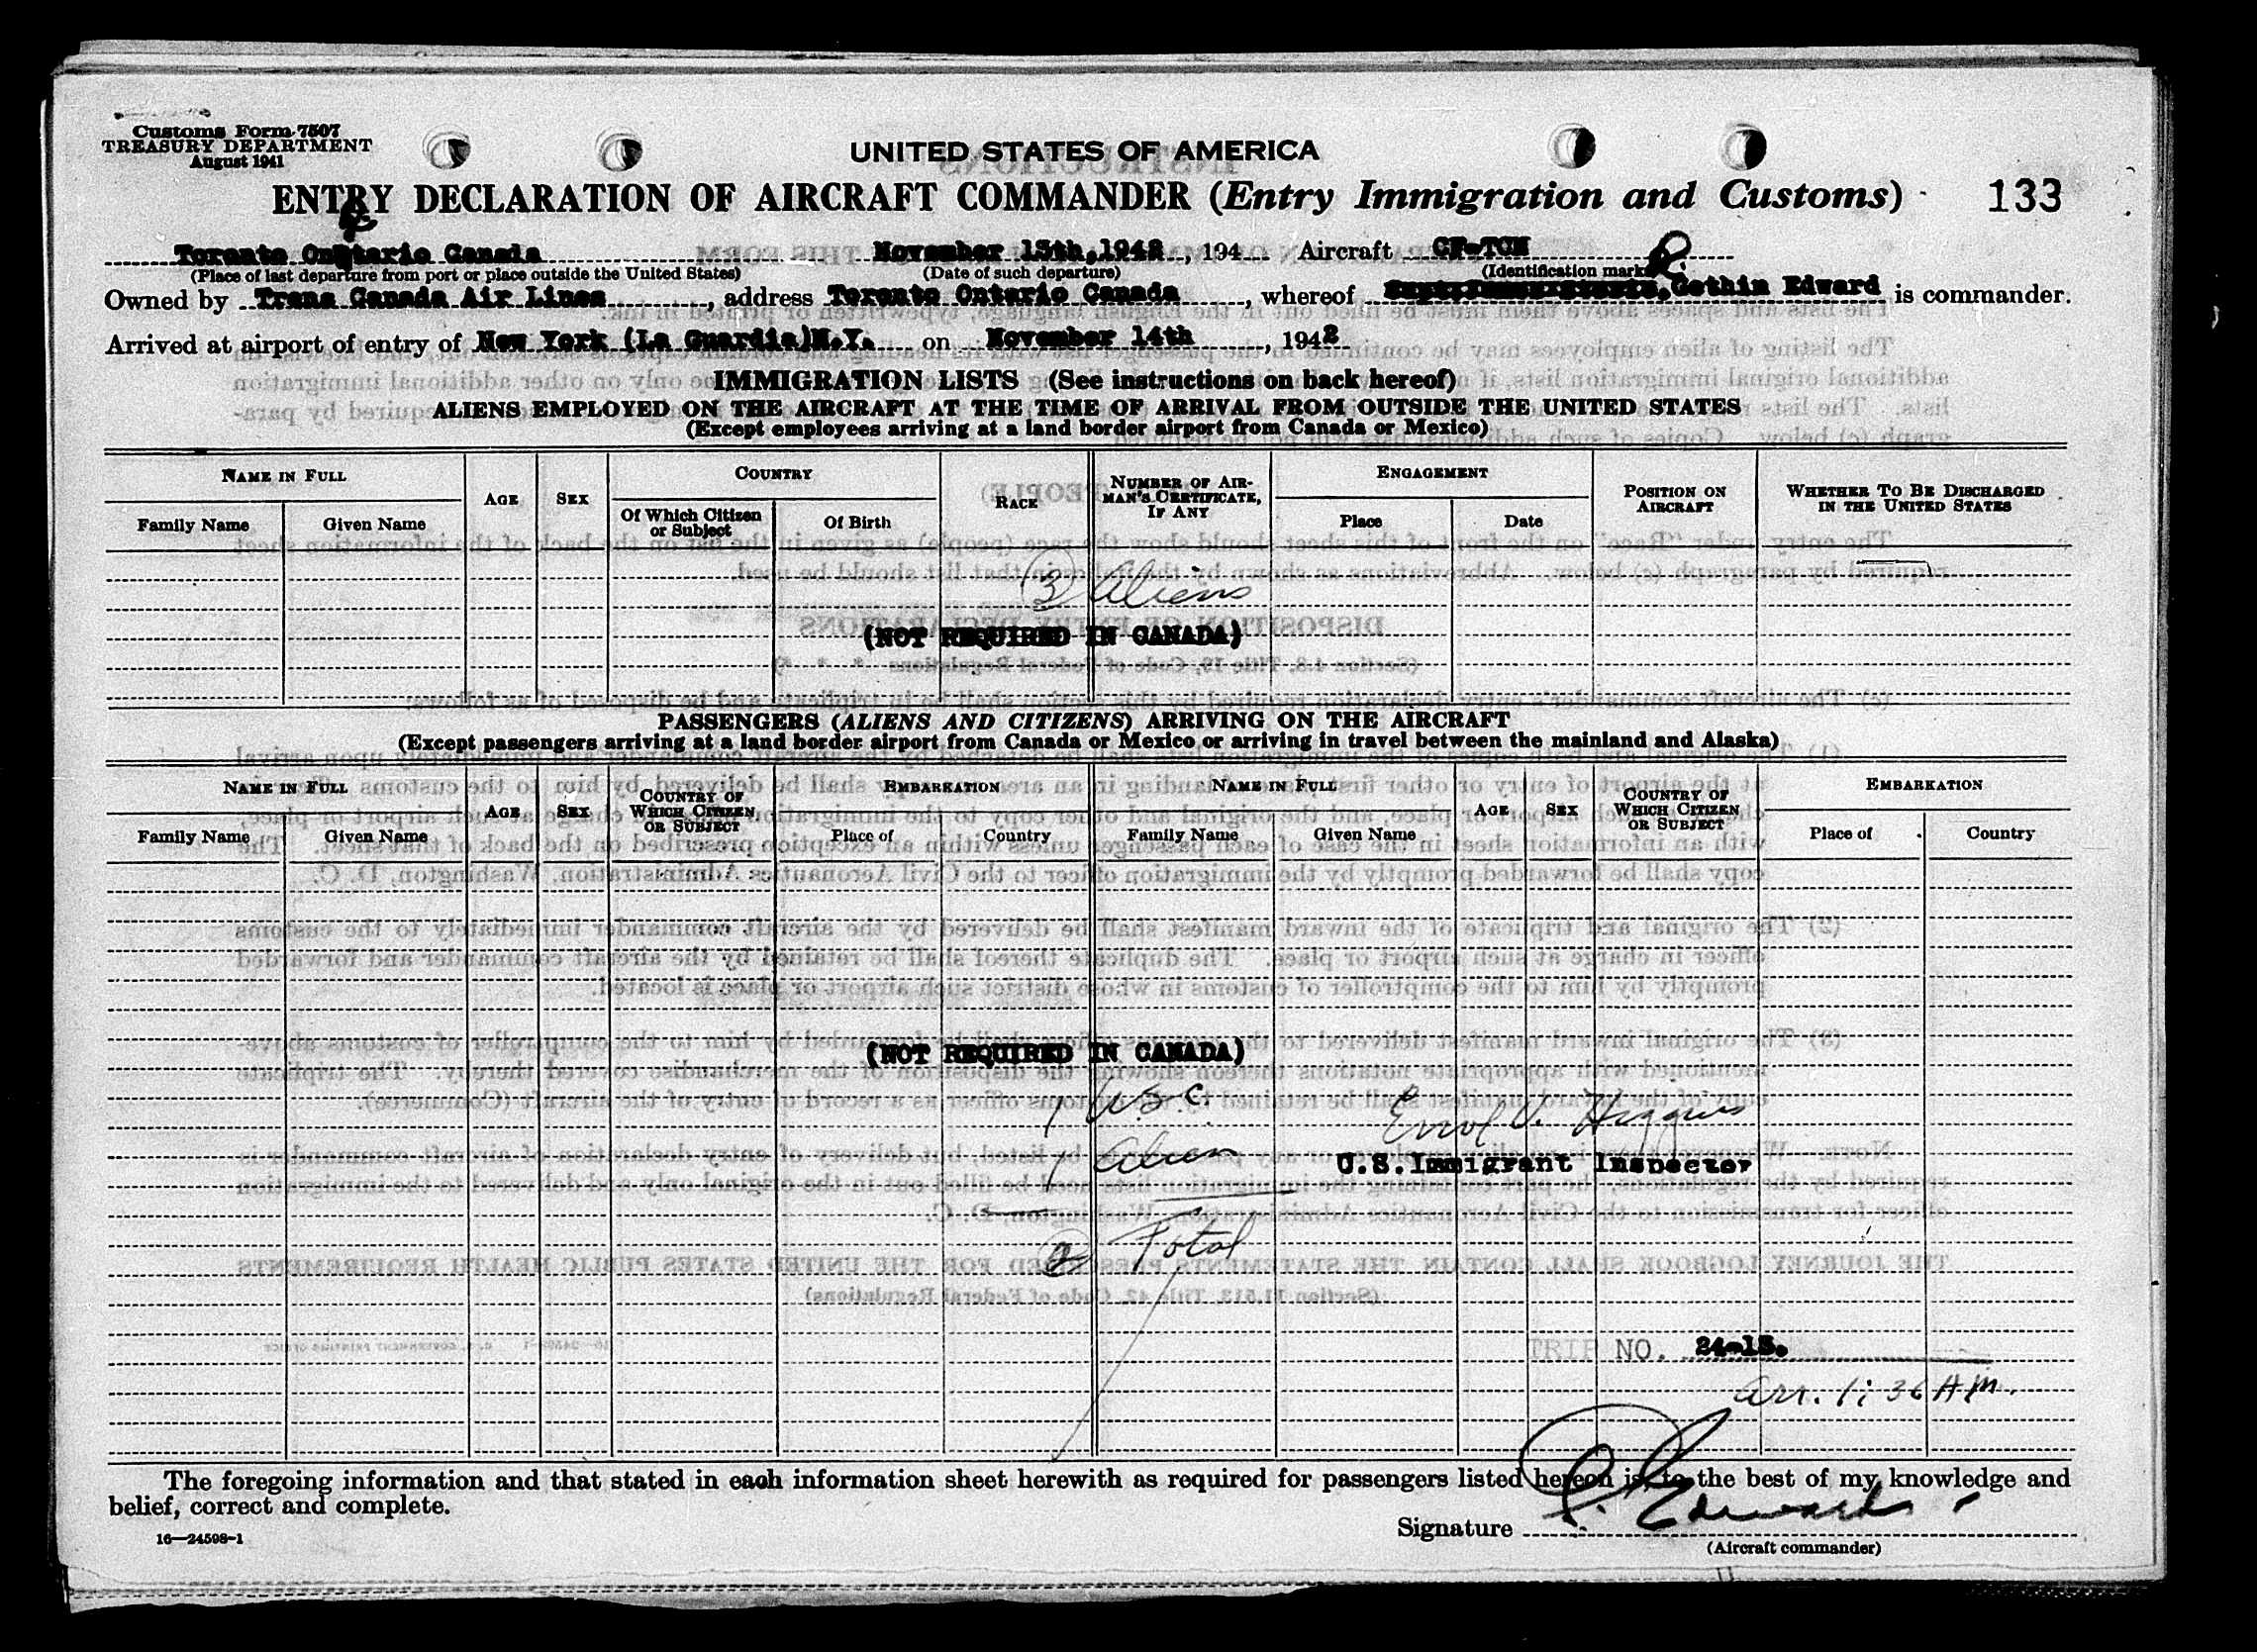 Customs Form 7507
TREASURY DEPARTMENT
August 1941
UNITED STATES OF AMERICA
ENTRY DECLARATION OF AIRCRAFT COMMANDER (Entry Immigration and Customs)
133
Toronto Ontario Canada November 13th, 1942, 194 Aircraft CF-TCN
(Place of last departure from port or place outside the United States) (Date of such departure) (Identification marks)
Owned by Trans Canada Air Lines, address Toronto Ontario Canada, whereof Gethin Edward is commander.
Arrived at airport of entry of New York (La Guardia)N.Y. on November 14th, 1942
IMMIGRATION LISTS (See instructions on back hereof)
ALIENS EMPLOYED ON THE AIRCRAFT AT THE TIME OF ARRIVAL FROM OUTSIDE THE UNITED STATES
(Except employees arriving at a land border airport from Canada or Mexico)
NAME IN FULL AGE SEX COUNTRY RACE NUMBER OF AIRMAN'S CERTIFICATE, IF ANY ENGAGEMENT POSITION ON AIRCRAFT WHETHER TO BE DISCHARGED IN THE UNITED STATES
Family Name Given Name Of Which Citizen or Subject Of Birth Place Date
3 Aliens
(NOT REQUIRED IN CANADA)
PASSENGERS (ALIENS AND CITIZENS) ARRIVING ON THE AIRCRAFT
(Except passengers arriving at a land border airport from Canada or Mexico or arriving in travel between the mainland and Alaska)
NAME IN FULL AGE SEX COUNTRY OF WHICH CITIZEN OR SUBJECT EMBARKATION NAME IN FULL AGE SEX COUNTRY OF WHICH CITIZEN OR SUBJECT EMBARKATION
Family Name Given Name Place of Country Family Name Given Name Place of Country
(NOT REQUIRED IN CANADA)
1 U.S.C. Errol V. Higgins
1 Alien U.S. Immigrant Inspector
2 Total
TRIP NO. 24-13.
arr. 1:36 A.M.
The foregoing information and that stated in each information sheet herewith as required for passengers listed hereon is, to the best of my knowledge and
belief, correct and complete.
16—24598-1
Signature G. Edward
(Aircraft commander)